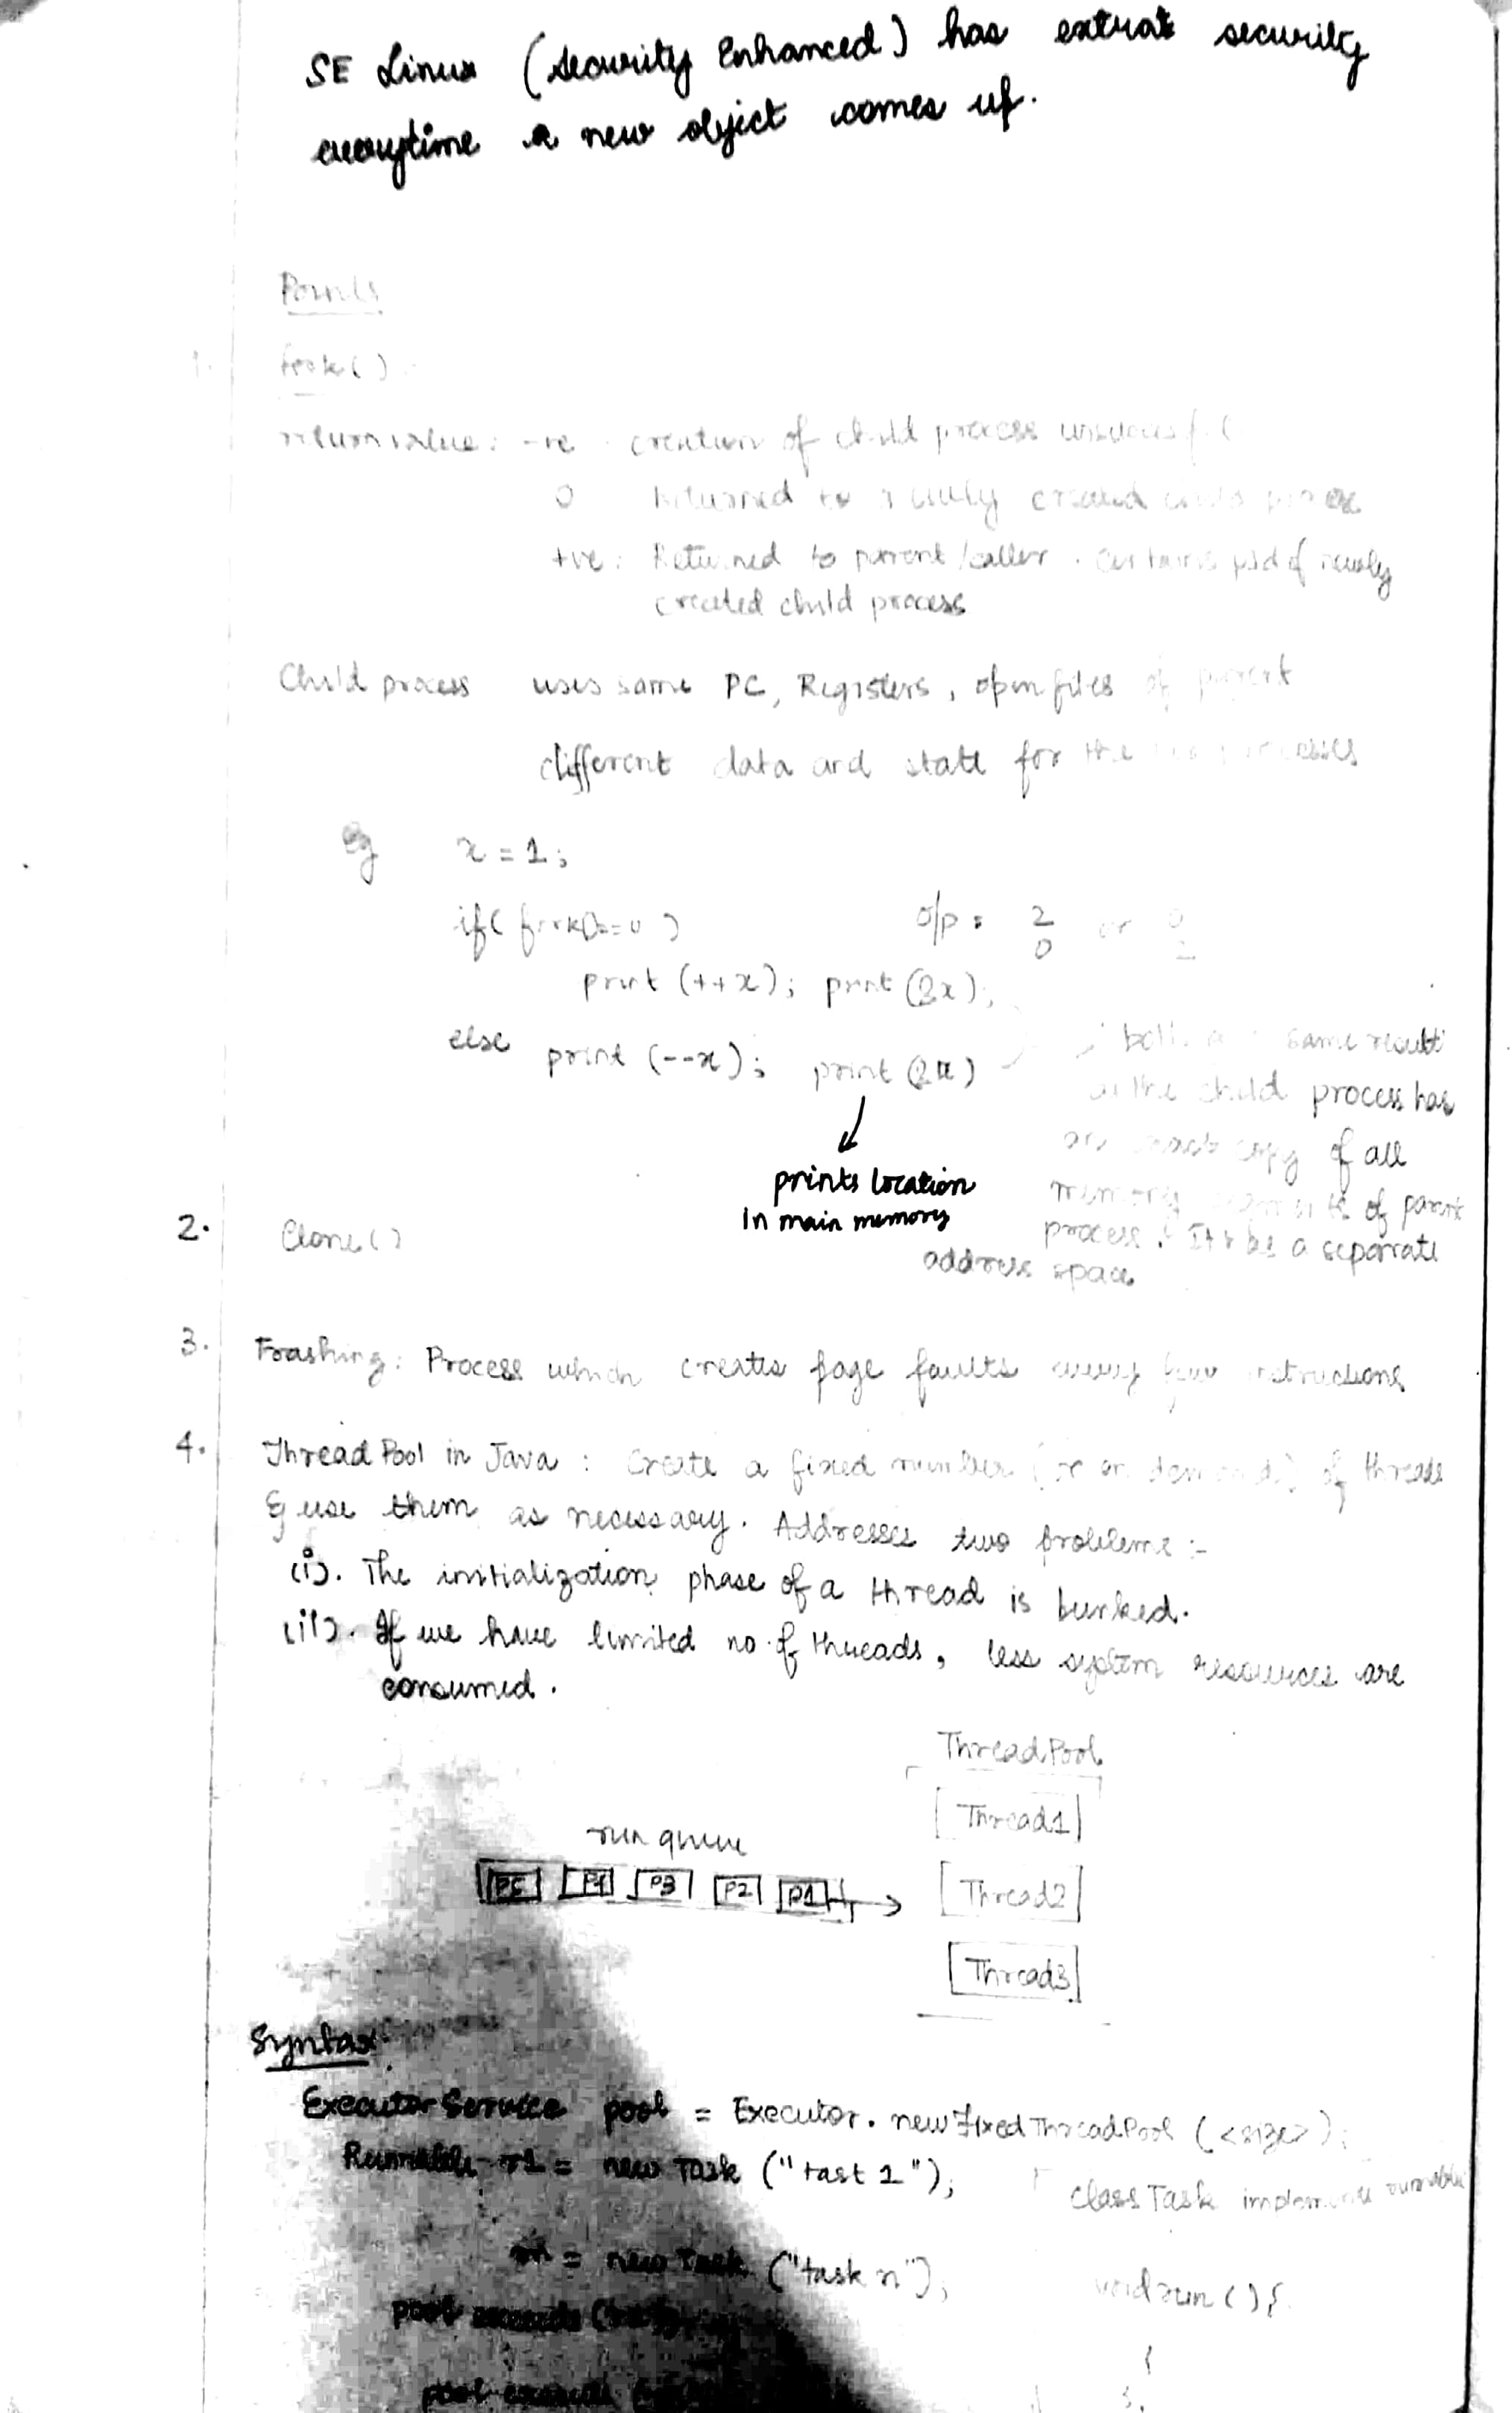 SE Linux (Security Enhanced) has extrat security
everytime a new object comes up.
Points
1. fork()
return value: -ve creation of child process unsuccessful
0 Returned to newly created child process
+ve: Returned to parent/caller. contains pid of newly
created child process
Child process uses same PC, Registers, open files of parent
different data and state for the two processes
Eg x = 1;
if( fork()==0 ) o/p: 2 or 0
0 2
print (++x); print (&x);
else print (--x); print (&x)
both same result
as the child process has
an exact copy of all
memory segments of parent
process. It a separate
address space
prints location
In main memory
2. Clone()
3. Trashing: Process which creates page faults every few instructions
4. Thread Pool in Java: Create a fixed number (or on demand) of threads
& use them as necessary. Addresses two problems :-
(i). The initialization phase of a thread is bunked.
(ii). If we have limited no. of threads, less system resources are
consumed.
ThreadPool
Thread1
run queue
P5 P4 P3 P2 P1
Thread2
Thread3
Syntax
ExecutorService pool = Executor.newFixedThreadPool (<size>);
Runnable r1 = new Task ("tast 1");
class Task implements runnable
rn = new Task ("task n");
void run () {
pool execute
pool execute
}